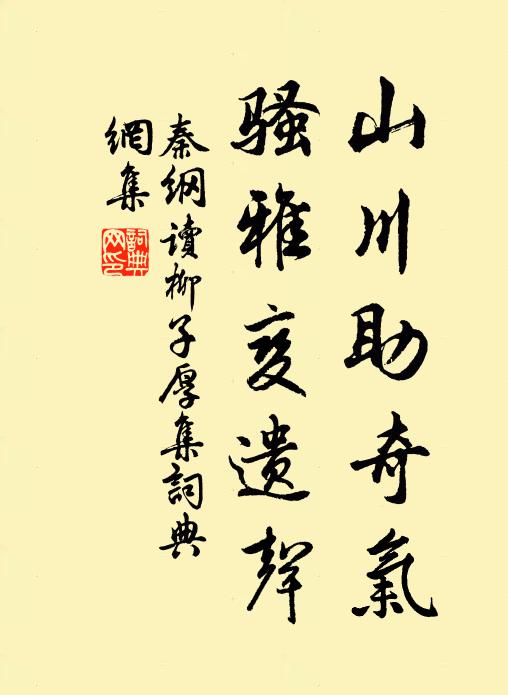 山川助奇氣
騷雅变遗聲
秦綱讀柳子厚集詞典
網集
詞典網印